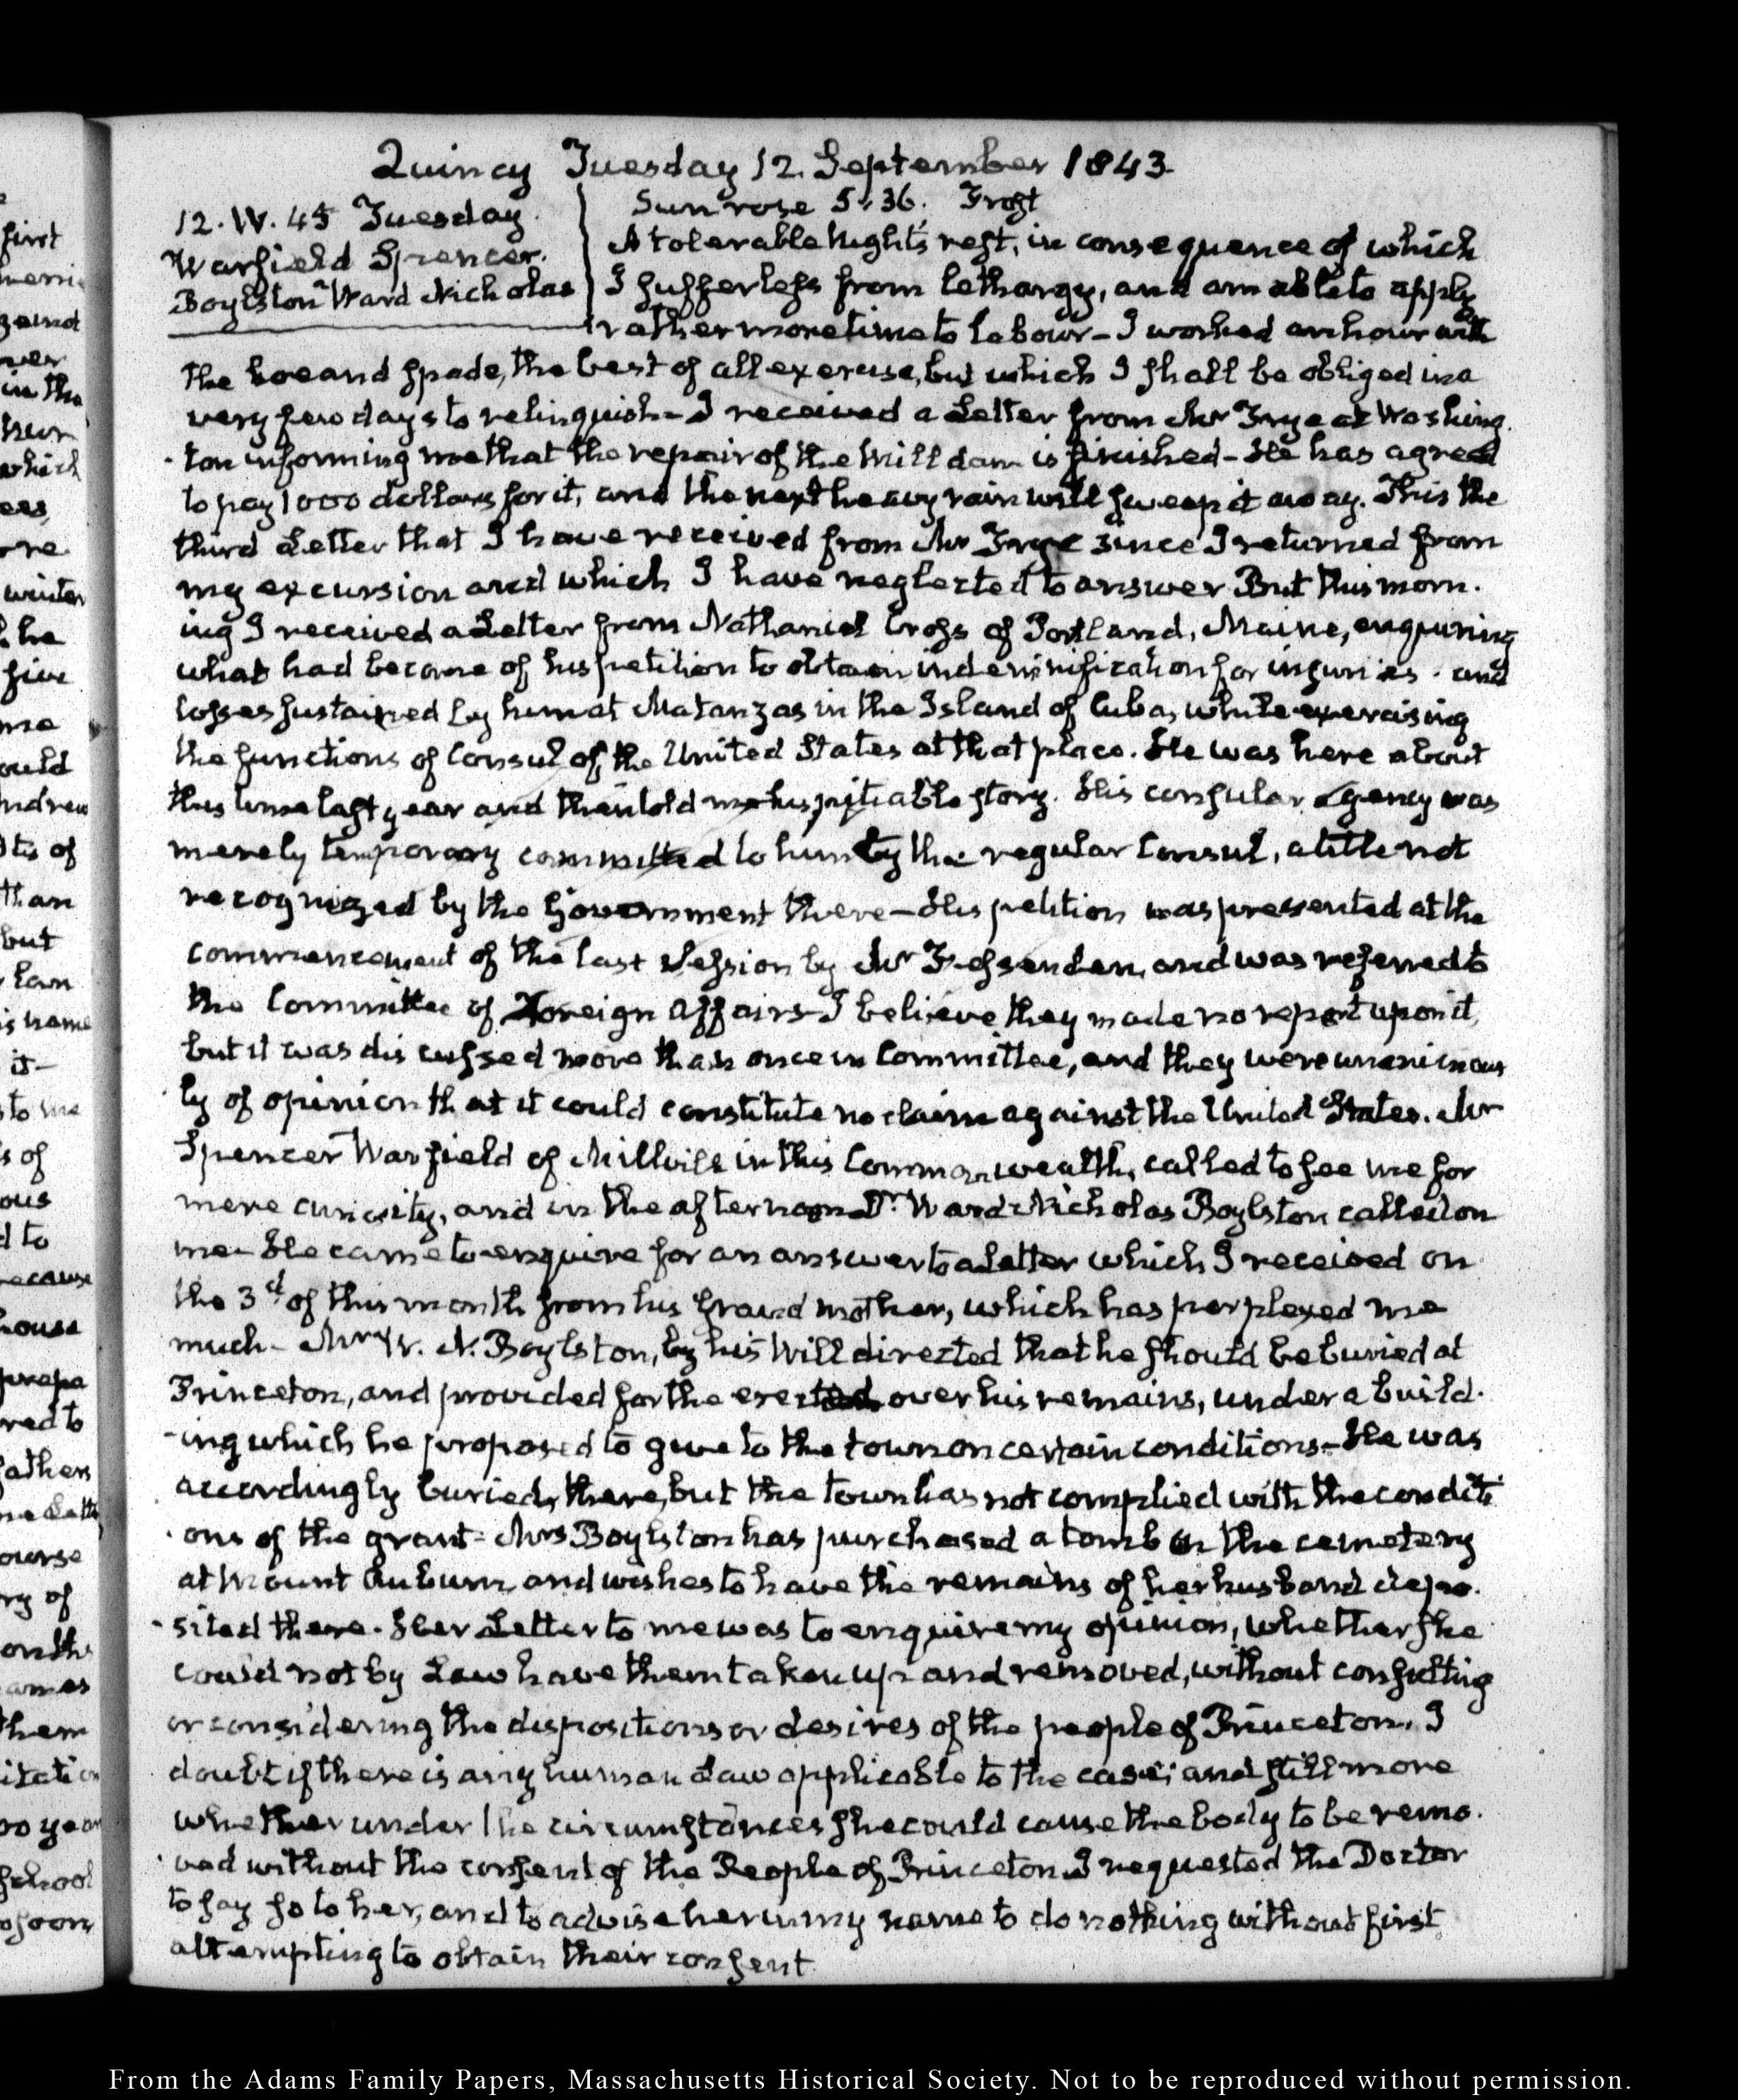 Quincy Tuesday 12. September 1843.
12. IV. 45 Tuesday.
Warfield Spencer.
Boylston Ward Nicholas
Sun rose 5.36. Frost
A tolerable Night's rest, in consequence of which
I suffer less from lethargy, and am able to apply
rather more time to labour— I worked an hour with
the hoe and spade, the best of all exercise, but which I shall be obliged in a
very few days to relinquish— I received a Letter from Mr Frye at Washing-
-ton informing me that the repair of the Mill dam is finished— He has agreed
to pay 1000 dollars for it, and the next heavy rain will sweep it away. This the
third Letter that I have received from Mr Frye since I returned from
my excursion and which I have neglected to answer But this morn-
ing I received a Letter from Nathaniel Cross of Portland, Maine, enquiring
what had become of his petition to obtain indemnification for injuries and
losses sustained by him at Matanzas in the Island of Cuba, while exercising
the functions of Consul of the United States at that place. He was here about
this time last year and then told me his pitiable story. His consular Agency was
merely temporary committed to him by the regular Consul, a title not
recognized by the Government there— His petition was presented at the
commencement of the last Session by Mr Fessenden, and was referred to
the Committee of Foreign Affairs— I believe they made no report upon it,
but it was discussed more than once in Committee, and they were unanimous
ly of opinion that it could constitute no claim against the United States. Mr
Spencer Warfield of Millville in this Commonwealth, called to see me for
mere curiosity, and in the afternoon Dr. Ward Nicholas Boylston called on
me— He came to enquire for an answer to a Letter which I received on
the 3d of this month from his Grand mother, which has perplexed me
much— Mr W. N. Boylston, by his Will directed that he should be buried at
Princeton, and provided for the erected over his remains, under a build-
-ing which he proposed to give to the town on certain conditions— He was
accordingly buried, there, but the town has not complied with the conditi
ons of the grant— Mrs Boylston has purchased a tomb in the cemetery
at Mount Auburn and wishes to have the remains of her husband depo-
-sited there. Her Letter to me was to enquire my opinion, whether she
could not by Law have them taken up and removed, without consulting
or considering the dispositions or desires of the people of Princeton. I
doubt if there is any human Law applicable to the case; and still more
whether under the circumstances she could cause the body to be remo-
ved without the consent of the People of Princeton. I requested the Doctor
to say so to her, and to advise her in my name to do nothing without first
attempting to obtain their consent
From the Adams Family Papers, Massachusetts Historical Society. Not to be reproduced without permission.